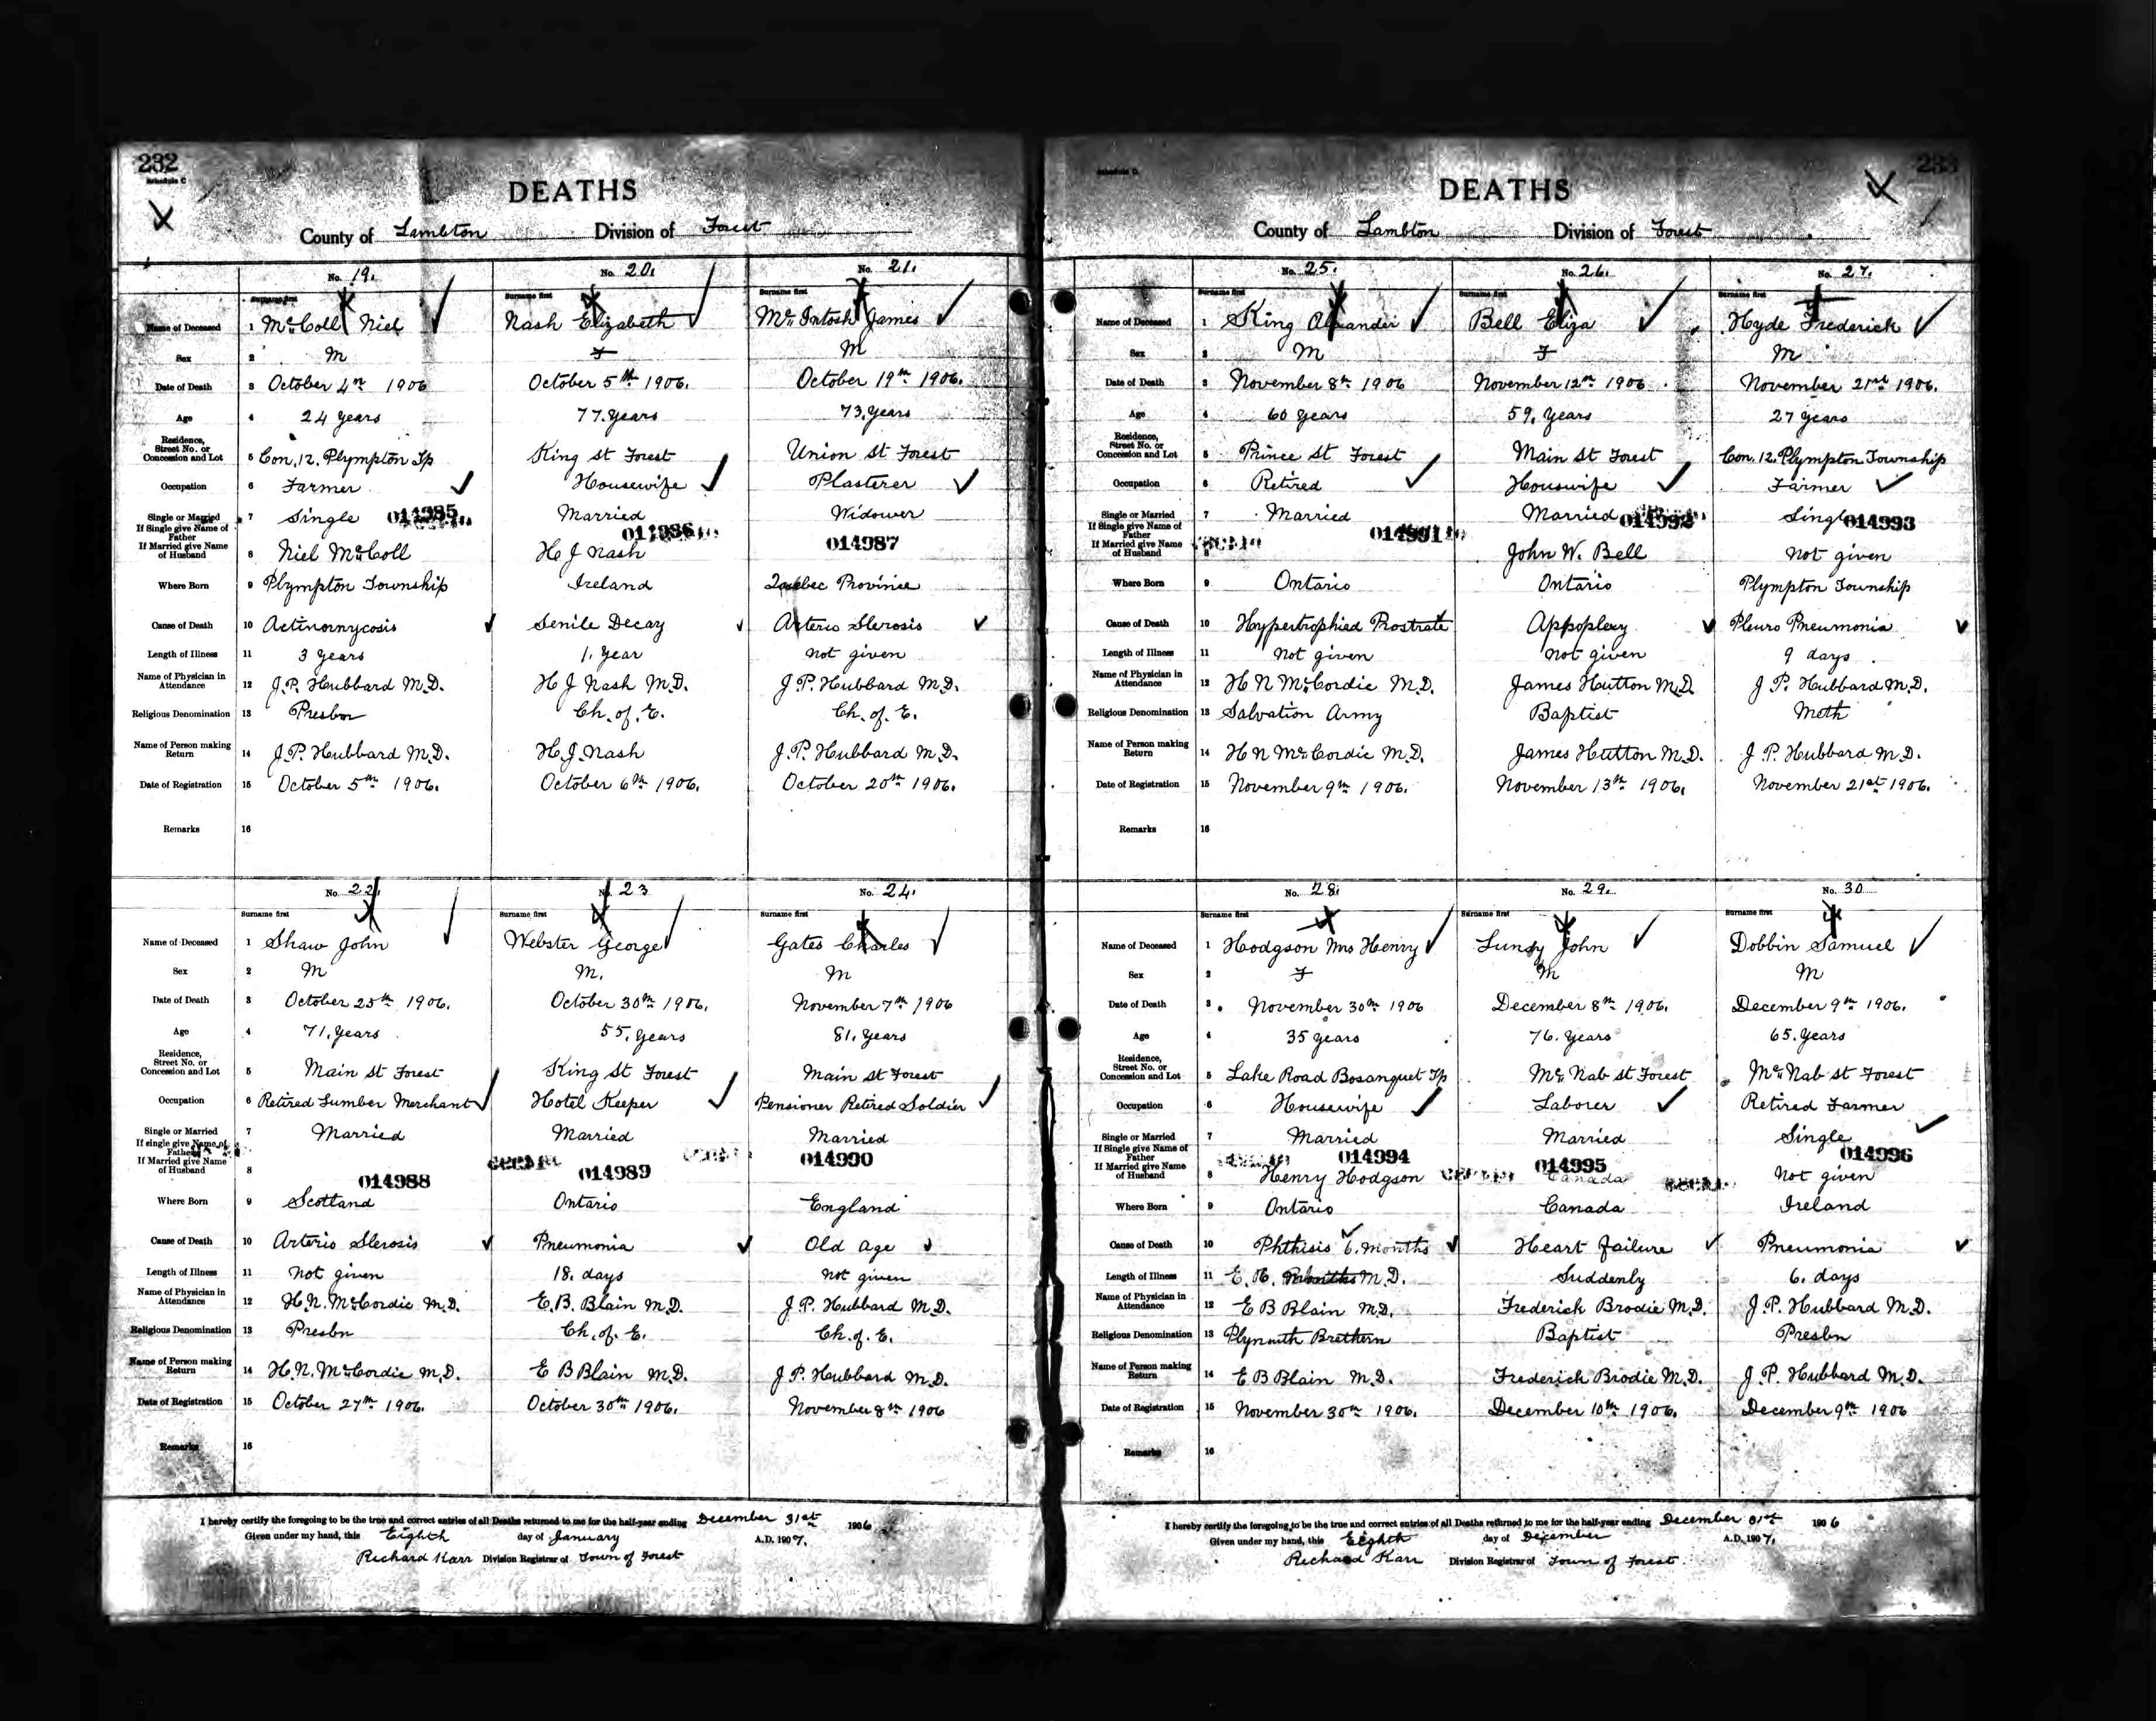 232
Schedule C
DEATHS
County of Lambton Division of Forest
No. 19. No. 20. No. 21.
Surname first Surname first Surname first
Name of Deceased 1 McColl Niel Nash Elizabeth McIntosh James
Sex 2 M F M
Date of Death 3 October 4th 1906 October 5th 1906. October 19th 1906.
Age 4 24 years 77. years 73. years
Residence, Street No. or Concession and Lot 5 Con. 12. Plympton Tp King St Forest Union St Forest
Occupation 6 Farmer Housewife Plasterer
Single or Married 7 Single Married Widower
014985 014986 014987
If Single give Name of Father If Married give Name of Husband 8 Niel McColl H J Nash
Where Born 9 Plympton Township Ireland Quebec Province
Cause of Death 10 Actinomycosis Senile Decay Arterio Slerosis
Length of Illness 11 3 years 1. year not given
Name of Physician in Attendance 12 J.P. Hubbard M.D. H J Nash M.D. J.P. Hubbard M.D.
Religious Denomination 13 Presbn Ch. of. E. Ch. of. E.
Name of Person making Return 14 J.P. Hubbard M.D. H.J. Nash J.P. Hubbard M.D.
Date of Registration 15 October 5th 1906. October 6th 1906. October 20th 1906.
Remarks 16
No. 22. No. 23 No. 24.
Surname first Surname first Surname first
Name of Deceased 1 Shaw John Webster George Gates Charles
Sex 2 M M. M
Date of Death 3 October 25th 1906. October 30th 1906. November 7th 1906
Age 4 71. years 55. years 81. years
Residence, Street No. or Concession and Lot 5 Main St Forest King St Forest Main St Forest
Occupation 6 Retired Lumber Merchant Hotel Keeper Pensioner Retired Soldier
Single or Married 7 Married Married Married
If single give Name of Father If Married give Name of Husband 8
014988 014989 014990
Where Born 9 Scotland Ontario England
Cause of Death 10 Arterio Slerosis Pneumonia Old age
Length of Illness 11 not given 18. days not given
Name of Physician in Attendance 12 H.N. McCordic M.D. E.B. Blain M.D. J.P. Hubbard M.D.
Religious Denomination 13 Presbn Ch. of. E. Ch. of. E.
Name of Person making Return 14 H.N. McCordic M.D. E B Blain M.D. J.P. Hubbard M.D.
Date of Registration 15 October 27th 1906. October 30th 1906. November 8th 1906
Remarks 16
I hereby certify the foregoing to be the true and correct entries of all Deaths returned to me for the half-year ending December 31st 1906
Given under my hand, this Eighth day of January A.D. 1907.
Richard Karr Division Registrar of Town of Forest
233
DEATHS
County of Lambton Division of Forest
No. 25. No. 26. No. 27.
Surname first Surname first Surname first
Name of Deceased 1 King Alexander Bell Eliza Hyde Frederick
Sex 2 M F M
Date of Death 3 November 8th 1906 November 12th 1906 November 21st 1906.
Age 4 60 years 59. years 27 years
Residence, Street No. or Concession and Lot 5 Prince St Forest Main St Forest Con. 12. Plympton Township
Occupation 6 Retired Houswife Farmer
Single or Married 7 Married Married Single
014991 014992 014993
If Single give Name of Father If Married give Name of Husband 8 John W. Bell not given
Where Born 9 Ontario Ontario Plympton Township
Cause of Death 10 Hypertrophied Prostrate Appoplexy Pleuro Pneumonia
Length of Illness 11 not given not given 9 days
Name of Physician in Attendance 12 H N McCordic M.D. James Hutton M.D J P. Hubbard M.D.
Religious Denomination 13 Salvation Army Baptist Meth
Name of Person making Return 14 H N McCordic M.D. James Hutton M.D. J.P. Hubbard M.D.
Date of Registration 15 November 9th 1906. November 13th 1906. November 21st 1906.
Remarks 16
No. 28. No. 29. No. 30
Surname first Surname first Surname first
Name of Deceased 1 Hodgson Mrs Henry John Dobbin Samuel
Sex 2 F M M
Date of Death 3 November 30th 1906 December 8th 1906. December 9th 1906.
Age 4 35 years 76. years 65. years
Residence, Street No. or Concession and Lot 5 Lake Road Bosanquet Tp McNab st Forest McNab st Forest
Occupation 6 Housewife Laborer Retired Farmer
Single or Married 7 Married Married Single
014994 014995 014996
If Single give Name of Father If Married give Name of Husband 8 Henry Hodgson Canada not given
Where Born 9 Ontario Canada Ireland
Cause of Death 10 Phthisis 6. months Heart failure Pneumonia
Length of Illness 11 M.D. Suddenly 6. days
Name of Physician in Attendance 12 E B Blain M.D. Frederick Brodie M.D. J.P. Hubbard M.D.
Religious Denomination 13 Plymouth Brethern Baptist Presbn
Name of Person making Return 14 E B Blain M.D. Frederick Brodie M.D. J.P. Hubbard M.D.
Date of Registration 15 November 30th 1906. December 10th 1906. December 9th 1906
Remarks 16
I hereby certify the foregoing to be the true and correct entries of all Deaths returned to me for the half-year ending December 31st 1906
Given under my hand, this Eighth day of December A.D. 1907,
Richard Karr Division Registrar of Town of Forest